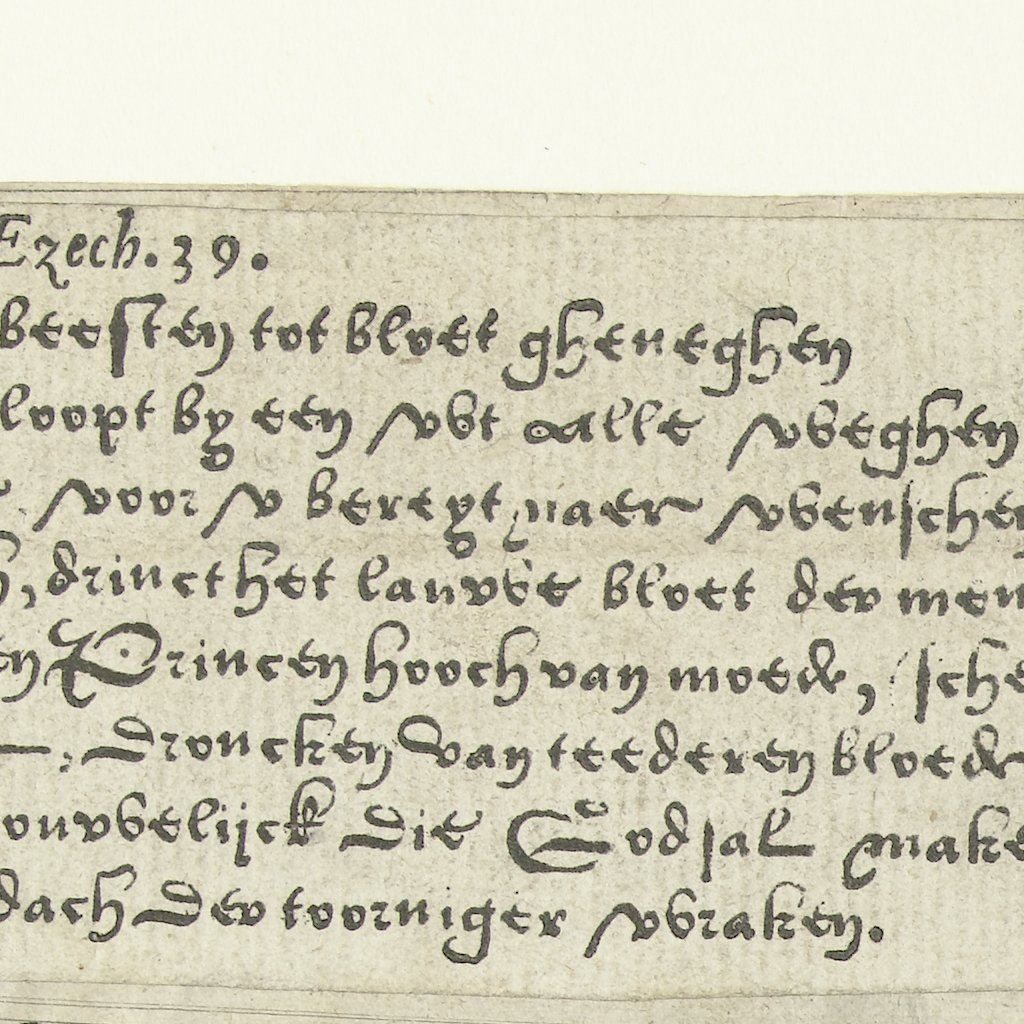 Ezech. 39.
beesten tot bloet gheneghen
loopt by een wt alle weghen
voor v bereyt naer wenschen
, drinct het lauwe bloet der men
en Princen hooch van moede, sche
droncken van teederen bloede
ouwelijck die God sal make
dach der toorniger wraken.